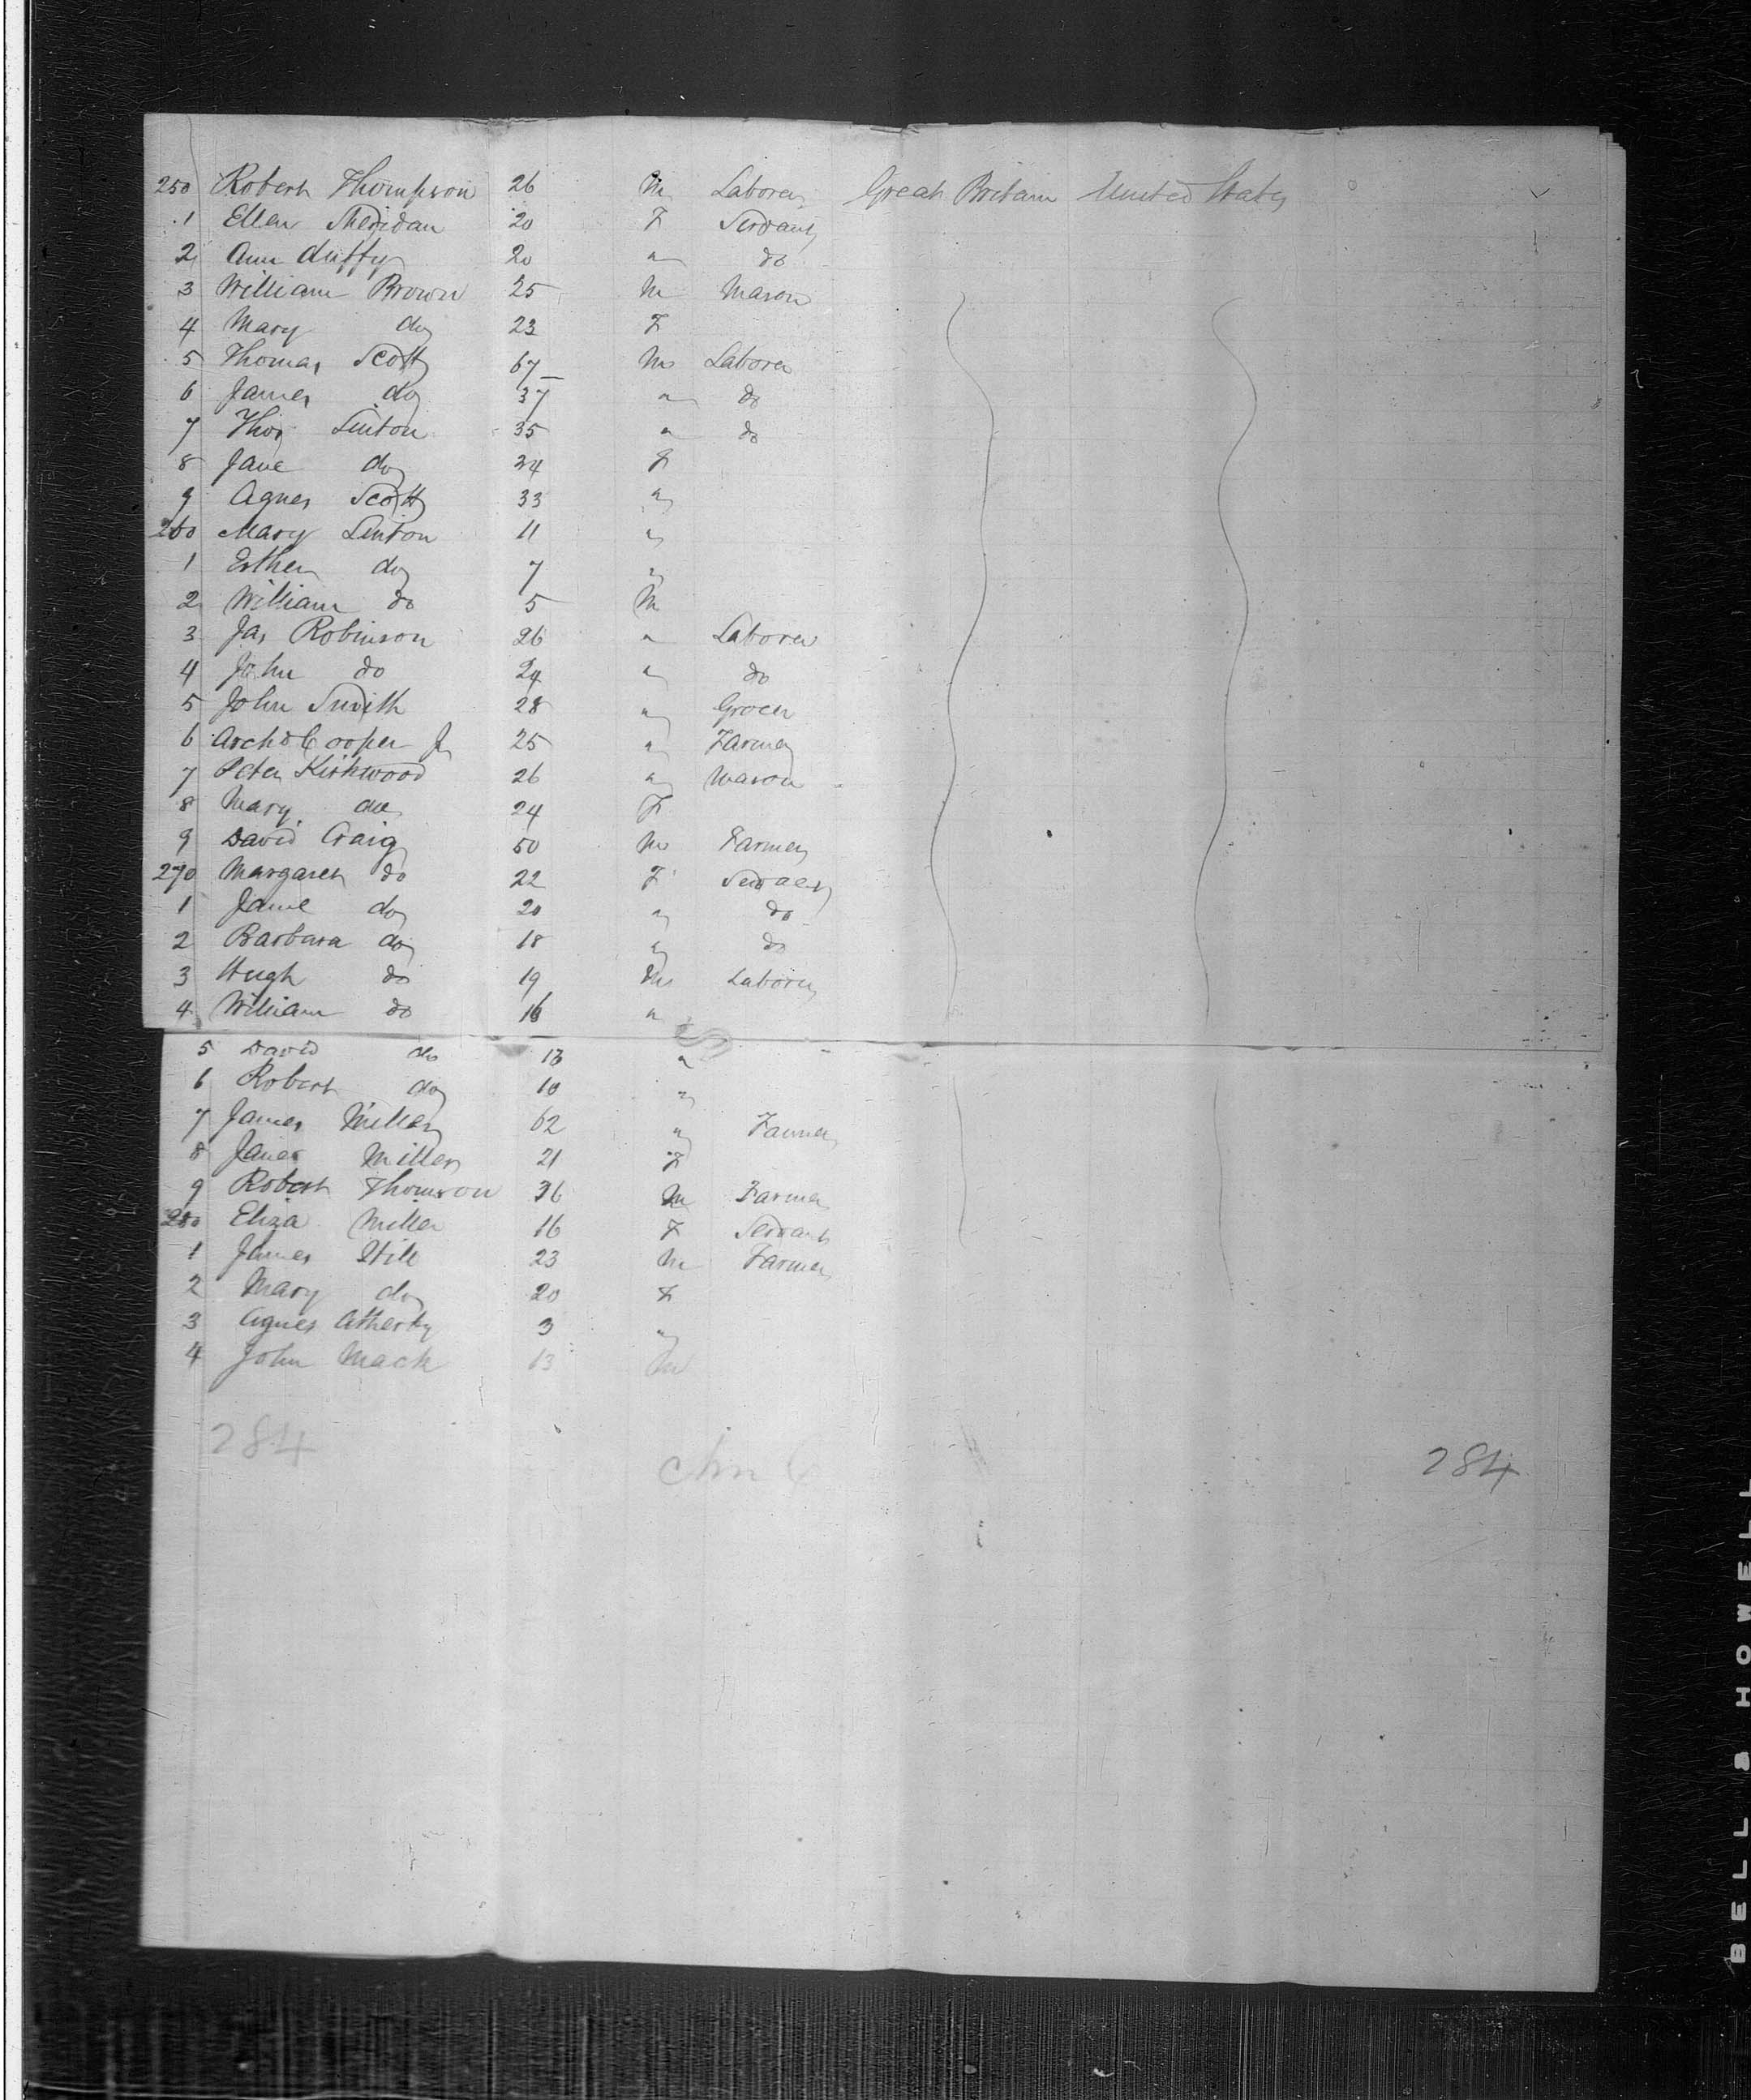 250 Robert Thompson 26 M Laborer Great Britain United States
1 Ellen Sheridan 20 F Servant
2 Ann Duffy 20 " do
3 William Brown 25 M Mason
4 Mary do 23 F
5 Thomas Scott 67 M Laborer
6 James do 37 " do
7 Thos Linton 35 " do
8 Jane do 34 F
9 Agnes Scott 33 "
260 Mary Linton 11 "
1 Esther do 7 "
2 William do 5 M
3 Jas Robinson 26 " Laborer
4 John do 24 " do
5 John Smith 28 " Grocer
6 Archd Cooper Jr 25 " Farmer
7 Peter Kirkwood 26 " Mason
8 Mary do 24 F
9 David Craig 50 M Farmer
270 Margaret do 22 F Servant
1 Jane do 20 " do
2 Barbara do 18 " do
3 Hugh do 19 M Laborer
4 William do 16 "
5 David do 13 "
6 Robert do 10 "
7 James Miller 62 " Farmer
8 Janet Miller 21 F
9 Robert Thomson 36 M Farmer
280 Eliza Miller 16 F Servant
1 James Hill 23 M Farmer
2 Mary do 20 F
3 Agnes 3 "
4 John Mack 13 M
284
284
BELL & HOWELL